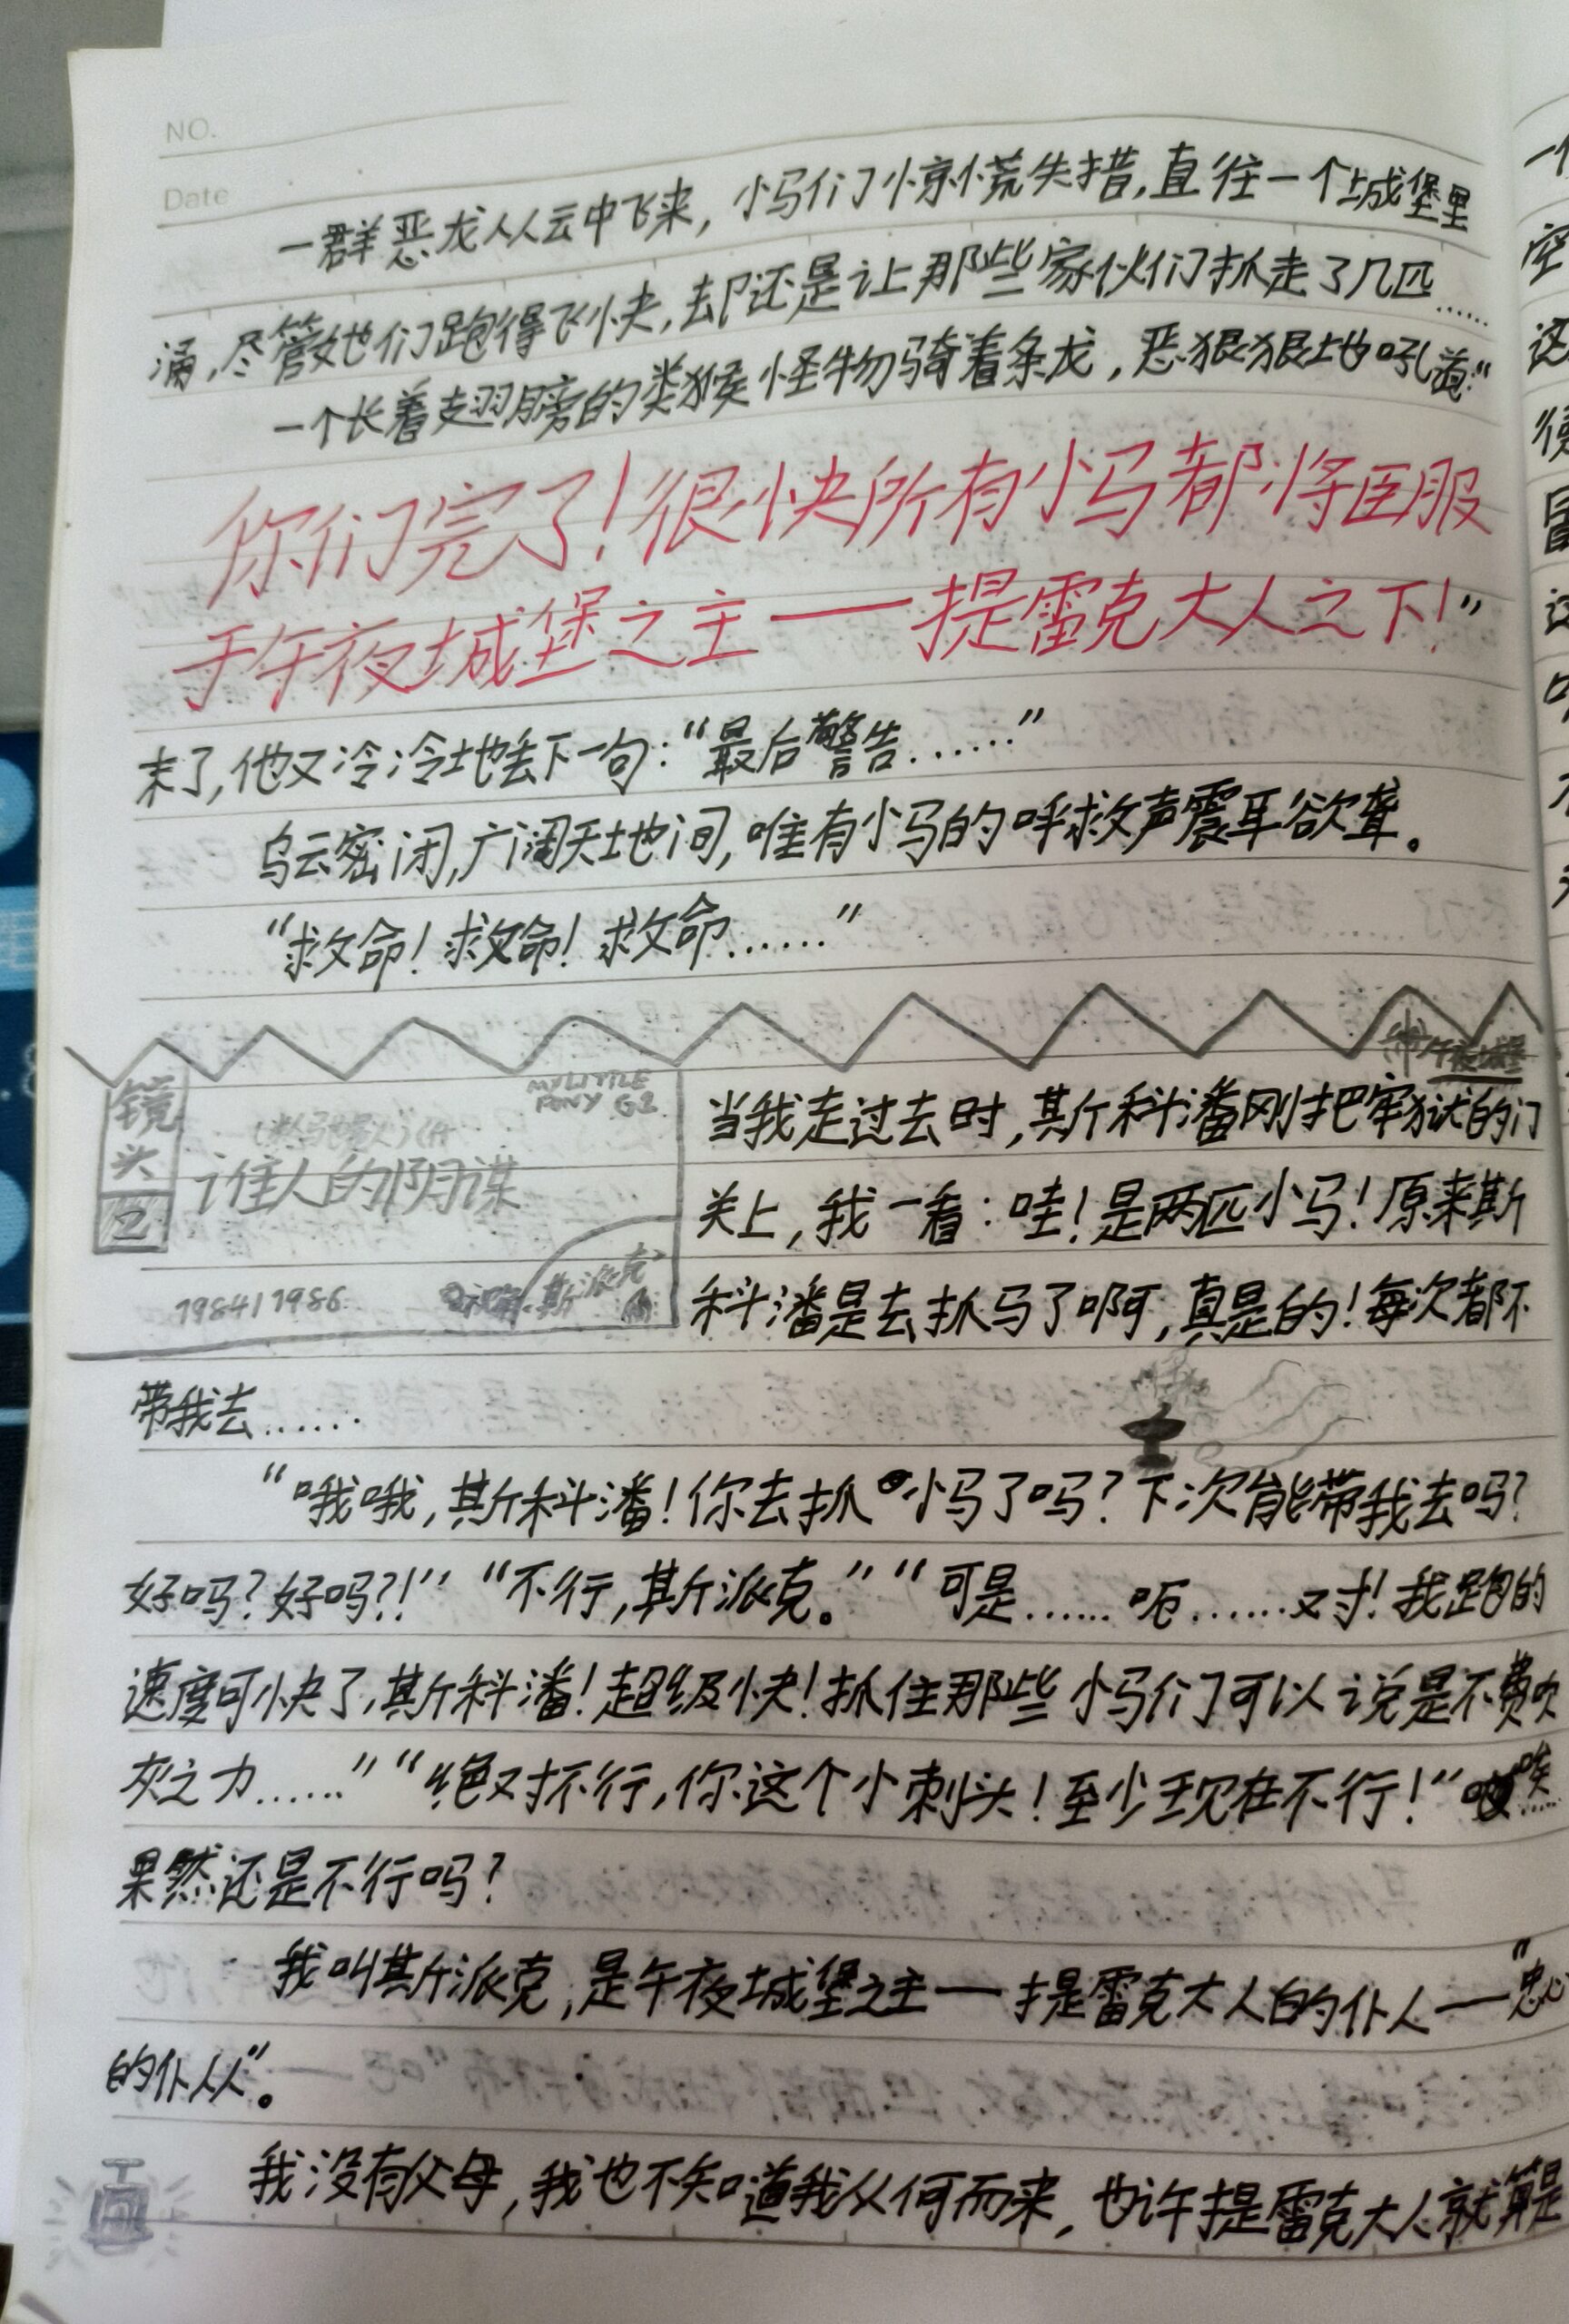 NO.
Date
一群恶龙从云中飞来，小马们惊慌失措，直往一个城堡里
涌，尽管她们跑得飞快，却还是让那些家伙们抓走了几匹……
一个长着翅膀的类猴怪物骑着条龙，恶狠狠地吼道：“
你们完了！很快所有小马都将臣服
于午夜城堡之主——提雷克大人之下！”
末了，他又冷冷地丢下一句：“最后警告……”
乌云密闭，广阔天地间，唯有小马的呼救声震耳欲聋。
“救命！救命！救命……”
午夜城堡
镜头
MY LITTLE
PONY G1
谁人的阴谋
1984/1986
斯派克
当我走过去时，斯科潘刚把牢狱的门
关上，我一看：哇！是两匹小马！原来斯
科潘是去抓马了啊，真是的！每次都不
带我去……
“哦哦，斯科潘！你去抓小马了吗？下次能带我去吗？
好吗？好吗？！”“不行，斯派克。”“可是……呃……对！我跑的
速度可快了，斯科潘！超级快！抓住那些小马们可以说是不费吹
灰之力……”“绝对不行，你这个小刺头！至少现在不行！”唉……
果然还是不行吗？
我叫斯派克，是午夜城堡之主——提雷克大人的仆人——“忠心
的仆人”。
我没有父母，我也不知道我从何而来，也许提雷克大人就算是